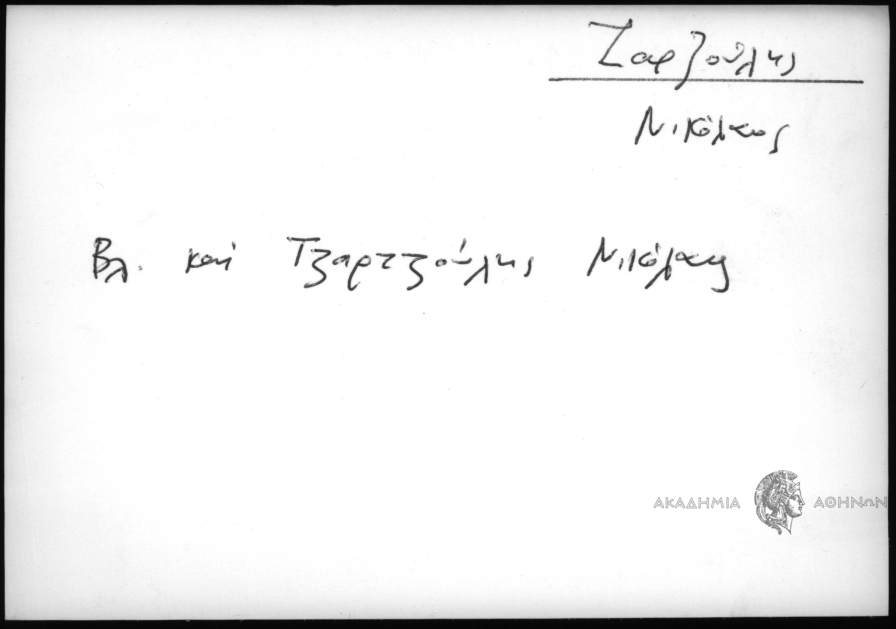 Ζαρζούλης
Νικόλαος
Βλ. καί Τζαρτζούλης Νικόλαος
ΑΚΑΔΗΜΙΑ ΑΘΗΝΩΝ